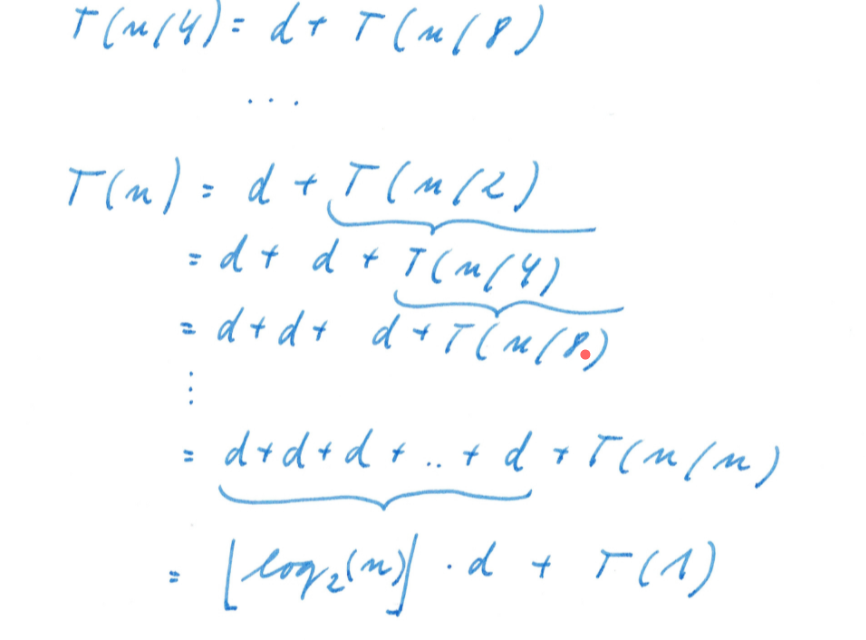 T(n/4) = d + T(n/8)
...
T(n) = d + T(n/2)
= d + d + T(n/4)
= d + d + d + T(n/8)
⋮
= d + d + d + .. + d + T(n/n)
= ⌊log₂(n)⌋ · d + T(1)